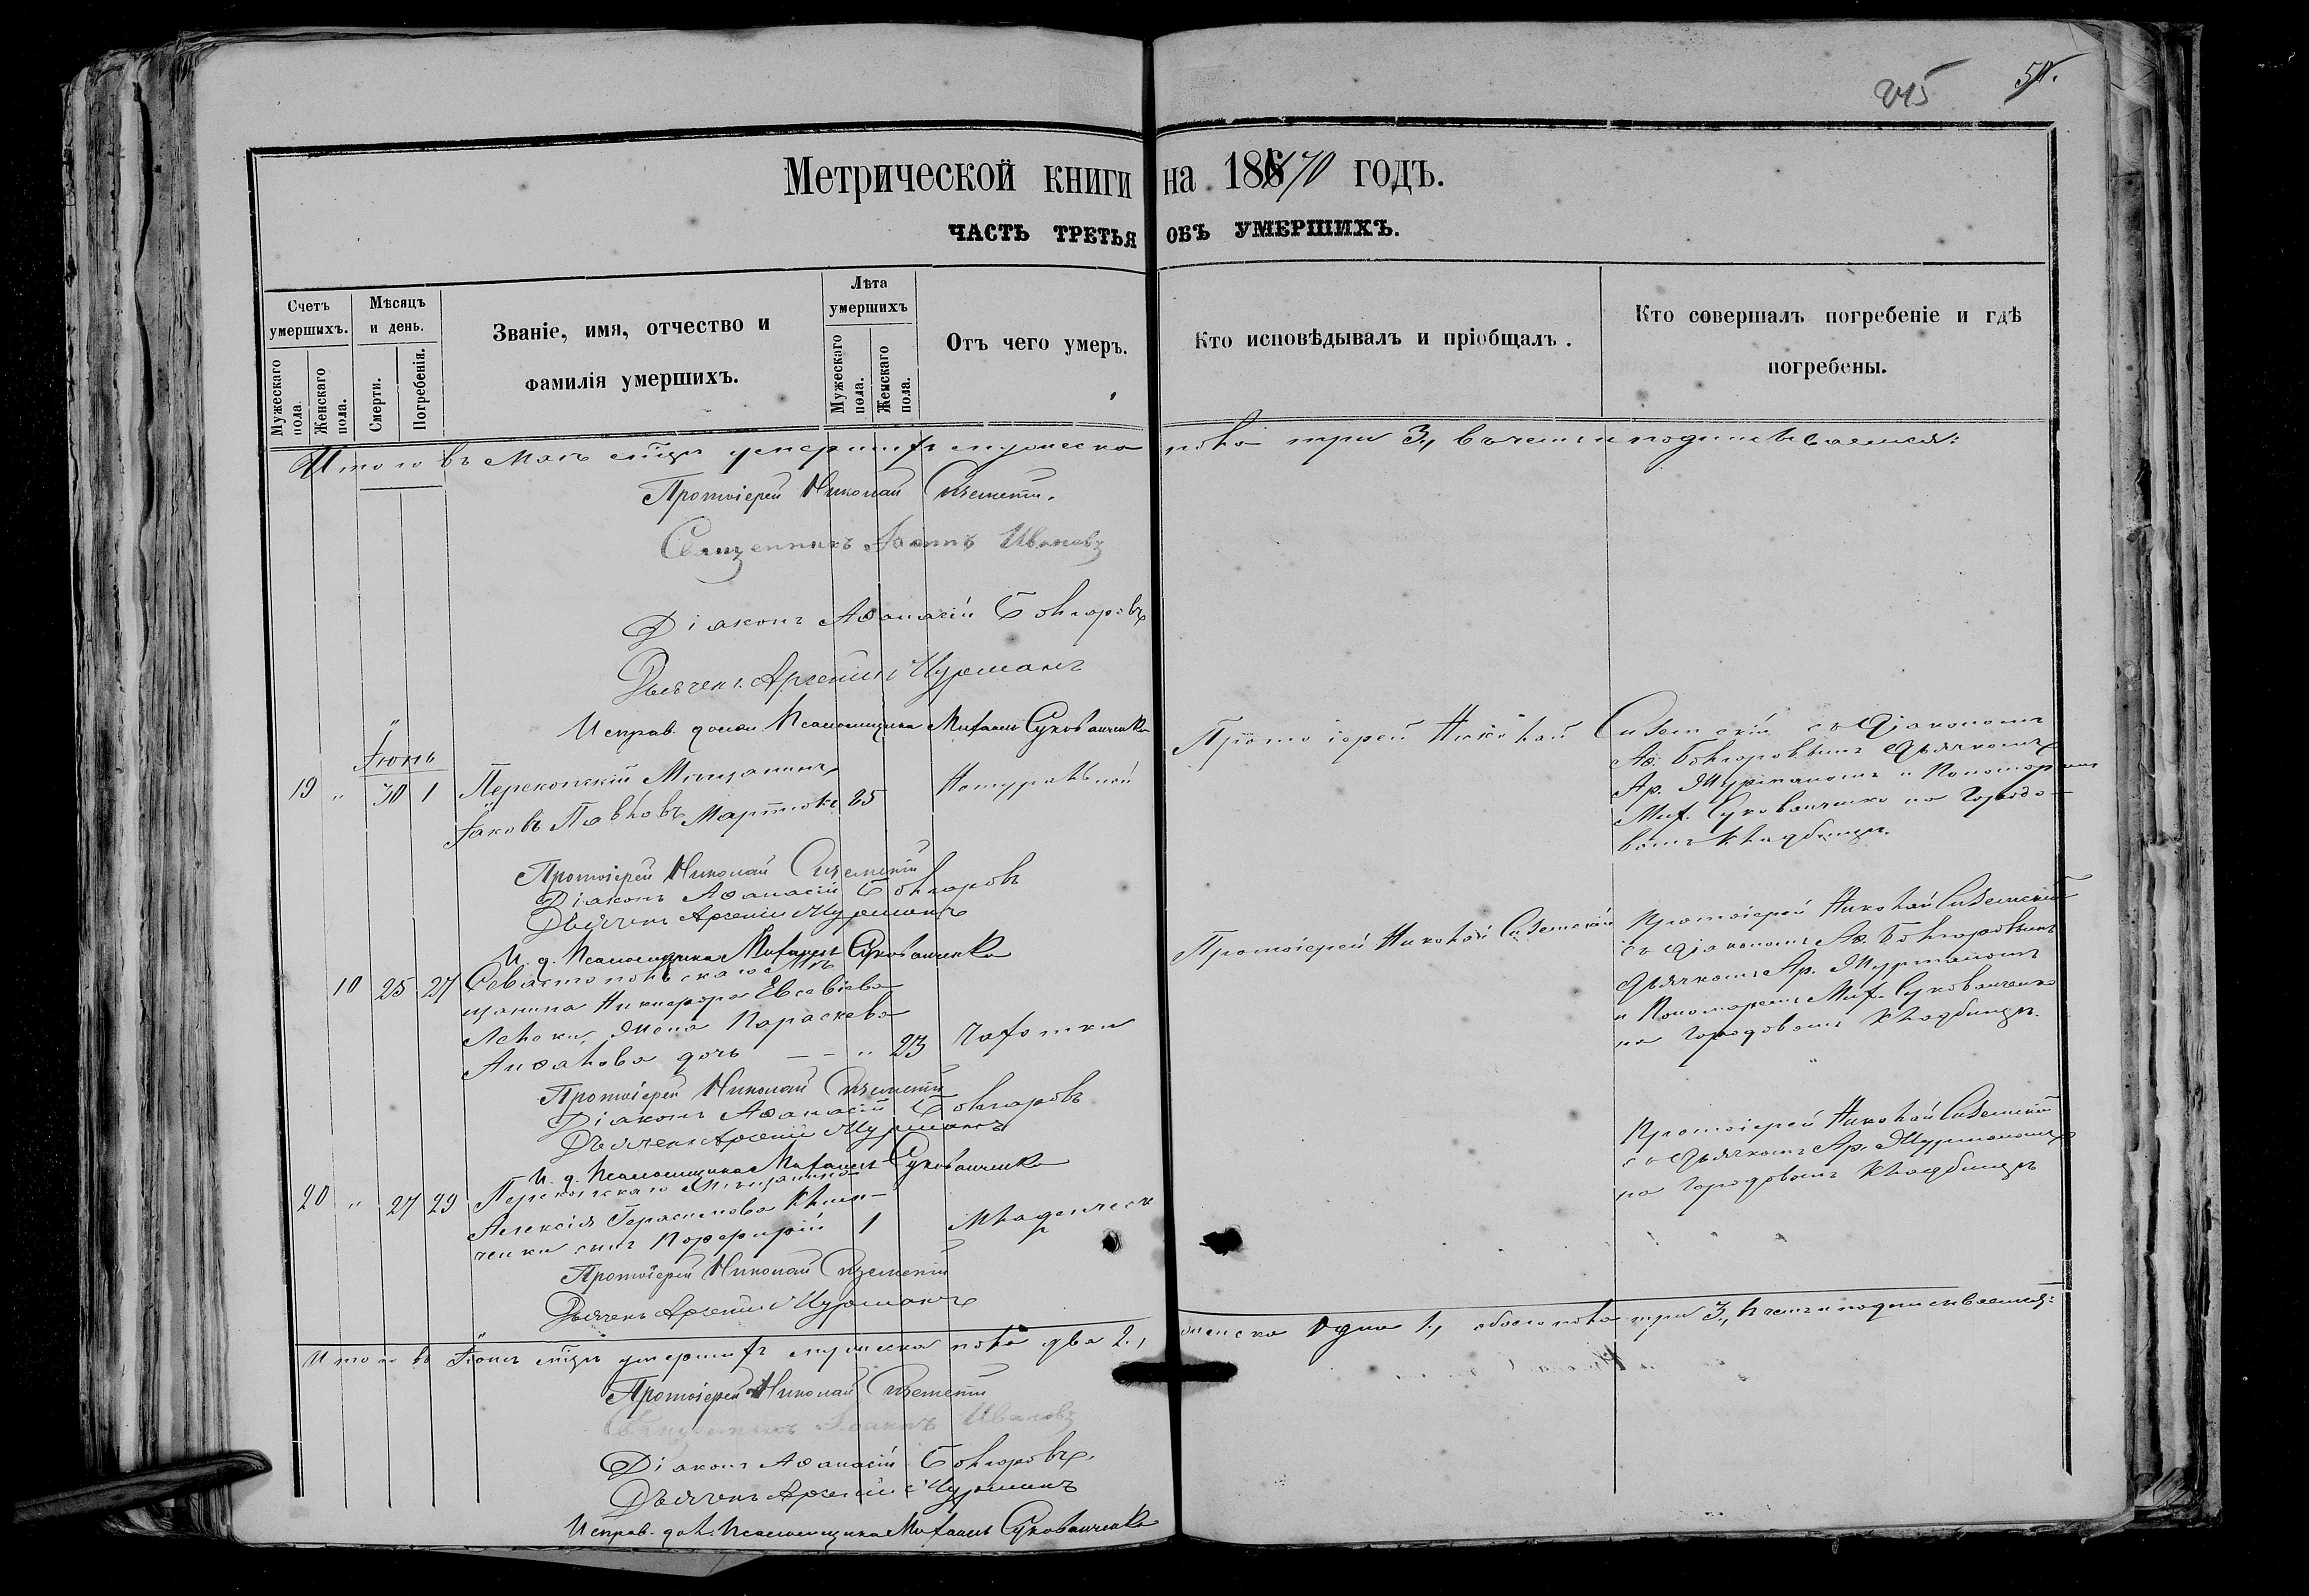 215 54.
Метрической книги на 1870 годъ.
ЧАСТЬ ТРЕТЬЯ ОБЪ УМЕРШИХЪ.
Счетъ умершихъ.
Мужескаго пола.
Женскаго пола.
Мѣсяцъ и день.
Смерти.
Погребенія.
Званіе, имя, отчество и
фамилія умершихъ.
Лѣта умершихъ
Мужескаго пола.
Женскаго пола.
Отъ чего умеръ.
Кто исповѣдывалъ и пріобщалъ.
Кто совершалъ погребеніе и гдѣ
погребены.
Итого въ Маѣ м̃цѣ умершихъ мужеска пола три 3, въ чемъ и подписываемся:
Протоіерей Николай
Священникъ Іоаннъ Ивановъ
Діаконъ Аѳанасій Болгаровъ
Дьячекъ Арсеній Мурманъ
Исправ. долж. Псаломщика Михаилъ Сукованченко
Іюнь
19 " 30 1 Перекопскій Мѣщанинъ
Іаковъ Павловъ 25
Натуральной
Протоіерей Николай
съ Діакономъ
Аѳ. Болгаровымъ Дьячкомъ
Ар. Мурманомъ и Пономаремъ
Мих. Сукованченко на Городо-
вомъ кладбищѣ.
Протоіерей Николай
Діаконъ Аѳанасій Болгаровъ
Дьячекъ Арсеній Мурманъ
И. д. Псаломщика Михаилъ Сукованченко
10 25 27 Севастопольскаго Мѣ-
щанина Никифора Евсевіева
жена Параскева
дочь — — " 23 Чахотки
Протоіерей Николай
Протоіерей Николай
съ Діакономъ Аѳ. Болгаровымъ
Дьячкомъ Ар. Мурманомъ
и Пономаремъ Мих. Сукованченко
на Городовомъ кладбищѣ.
Протоіерей Николай
Діаконъ Аѳанасій Болгаровъ
Дьячекъ Арсеній Мурманъ
И. д. Псаломщика Михаилъ Сукованченко
20 " 27 29 Перекопскаго Мѣщанина
Алексія Герасимова Клим-
ченки сынъ Порфирій 1
Младенческ
Протоіерей Николай
съ Дьячкомъ Ар. Мурманомъ
на Городовомъ кладбищѣ
Протоіерей Николай
Дьячекъ Арсеній Мурманъ
Итого въ Іюнѣ м̃цѣ умершихъ мужеска пола два 2, женска одна 1, обоего пола три 3, въ чемъ и подписываемся:
Протоіерей Николай
Священникъ Іоаннъ Ивановъ
Діаконъ Аѳанасій Болгаровъ
Дьячекъ Арсеній Мурманъ
Исправ. дол. Псаломщика Михаилъ Сукованченко